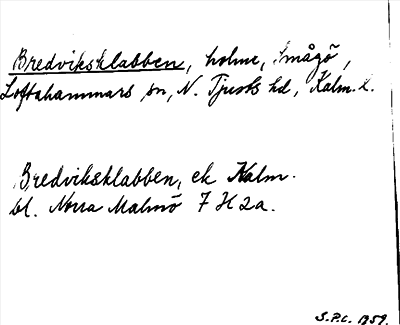 Bredviksklabben, holme, Smågö,
Loftahammars sn, N. Tjusts hd, Kalm. l.
Bredviksklabben, ek Kalm.
bl. Norra Malmö 7 H 2a.
S.P.C. 1959.